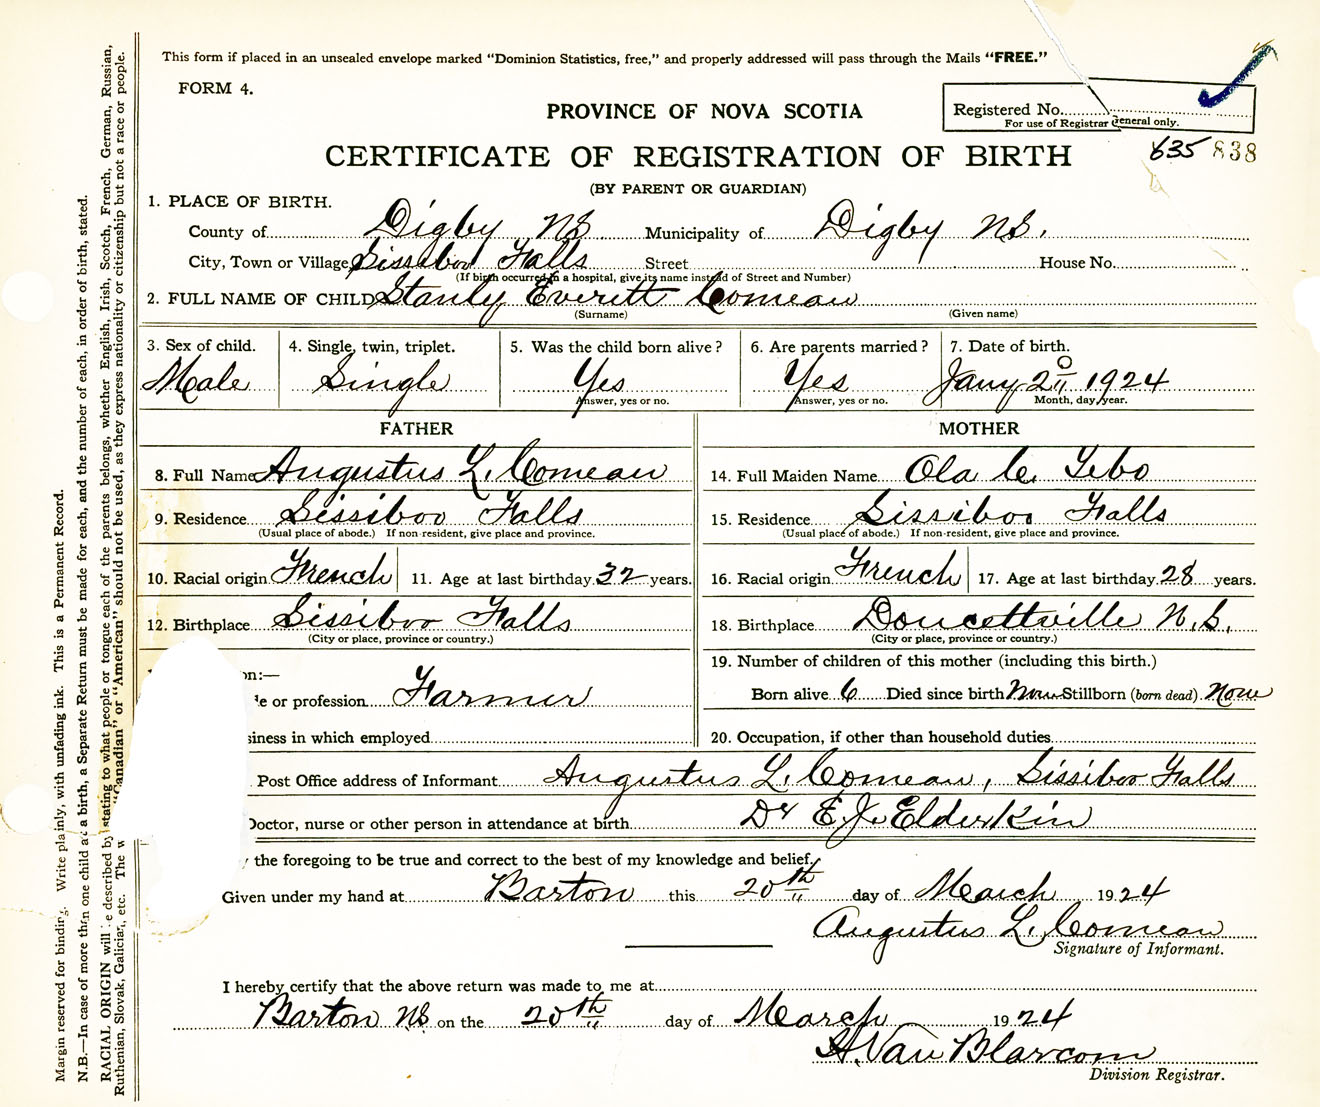 This form if placed in an unsealed envelope marked "Dominion Statistics, free," and properly addressed will pass through the Mails "FREE."
FORM 4.
PROVINCE OF NOVA SCOTIA
Registered No.
For use of Registrar General only.
CERTIFICATE OF REGISTRATION OF BIRTH
635 838
(BY PARENT OR GUARDIAN)
1. PLACE OF BIRTH.
County of Digby NS Municipality of Digby N.S.
City, Town or Village Sissiboo Falls Street House No.
(If birth occurred in a hospital, give its name instead of Street and Number)
2. FULL NAME OF CHILD Stanly Everett Comeau
(Surname) (Given name)
3. Sex of child. 4. Single, twin, triplet. 5. Was the child born alive? 6. Are parents married? 7. Date of birth.
Male Single Yes Yes Jany 2 1924
Answer, yes or no. Answer, yes or no. Month, day, year.
FATHER MOTHER
8. Full Name Augustus L. Comeau 14. Full Maiden Name Ola C. Tebo
9. Residence Sissiboo Falls 15. Residence Sissiboo Falls
(Usual place of abode.) If non-resident, give place and province. (Usual place of abode.) If non-resident, give place and province.
10. Racial origin French 11. Age at last birthday 32 years. 16. Racial origin French 17. Age at last birthday 28 years.
12. Birthplace Sissiboo Falls 18. Birthplace Doucettville N.S.
(City or place, province or country.) (City or place, province or country.)
on:— 19. Number of children of this mother (including this birth.)
e or profession Farmer Born alive 6 Died since birth None Stillborn (born dead) None
siness in which employed 20. Occupation, if other than household duties
Post Office address of Informant Augustus L. Comeau, Sissiboo Falls
Doctor, nurse or other person in attendance at birth Dr E. J. Elderkin
y the foregoing to be true and correct to the best of my knowledge and belief.
Given under my hand at Barton this 20th day of March 1924
Augustus L. Comeau
Signature of Informant.
I hereby certify that the above return was made to me at
Barton NS on the 20th day of March 1924
H. Van Blarcom
Division Registrar.
Margin reserved for binding. Write plainly, with unfading ink. This is a Permanent Record.
N.B.—In case of more than one child at a birth, a Separate Return must be made for each, and the number of each, in order of birth, stated.
RACIAL ORIGIN will be described by stating to what people or tongue each of the parents belongs, whether English, Irish, Scotch, French, German, Russian,
Ruthenian, Slovak, Galician, etc. The w "Canadian" or "American" should not be used, as they express nationality or citizenship but not a race or people.